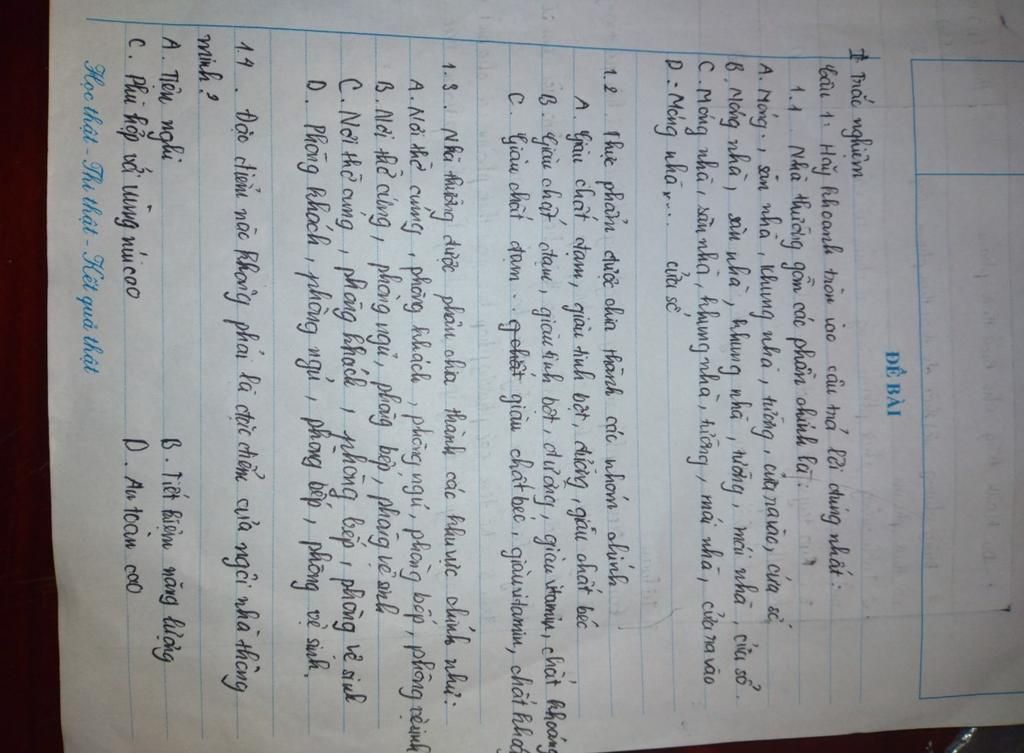 ĐỀ BÀI
I Trắc nghiệm
Câu 1: Hãy khoanh tròn vào câu trả lời đúng nhất:
1.1 Nhà thường gồm các phần chính là:
A. Móng, sàn nhà, khung nhà, tường, cửa ra vào, cửa sổ
B. Móng nhà, sàn nhà, khung nhà, tường, mái nhà, cửa sổ.
C. Móng nhà, sàn nhà, khung nhà, tường, mái nhà, cửa ra vào
D. Móng nhà, ... cửa sổ
1.2. Thực phẩm được chia thành các nhóm chính
A. Giàu chất đạm, giàu tinh bột, đường, giàu chất béo
B. Giàu chất đạm, giàu tinh bột, đường, giàu vitamin, chất khoáng
C. Giàu chất đạm. giàu chất béo, giàu vitamin, chất khoá
1.3. Nhà thường được phân chia thành các khu vực chính như:
A. Nơi thờ cúng, phòng khách, phòng ngủ, phòng bếp, phòng vệ sinh
B. Nơi thờ cúng, phòng ngủ, phòng bếp, phòng vệ sinh
C. Nơi thờ cúng, phòng khách, phòng bếp, phòng vệ sinh
D. Phòng khách, phòng ngủ, phòng bếp, phòng vệ sinh.
1.4. Đặc điểm nào không phải là đặc điểm của ngôi nhà thông
minh?
A. Tiện nghi B. Tiết kiệm năng lượng
C. Phù hợp với vùng núi cao D. An toàn cao
Học thật - Thi thật - Kết quả thật